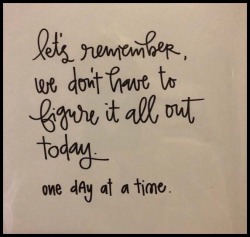 let's remember,
we don't have to
figure it all out
today.
one day at a time.